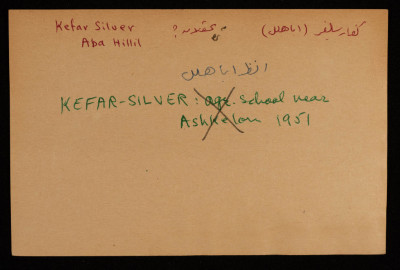 Kefar Silver ? كفار سلفر (اباهلل)
Aba Hillil
انظر اباهلل
KEFAR-SILVER: agr. school near
Ashkelon 1951